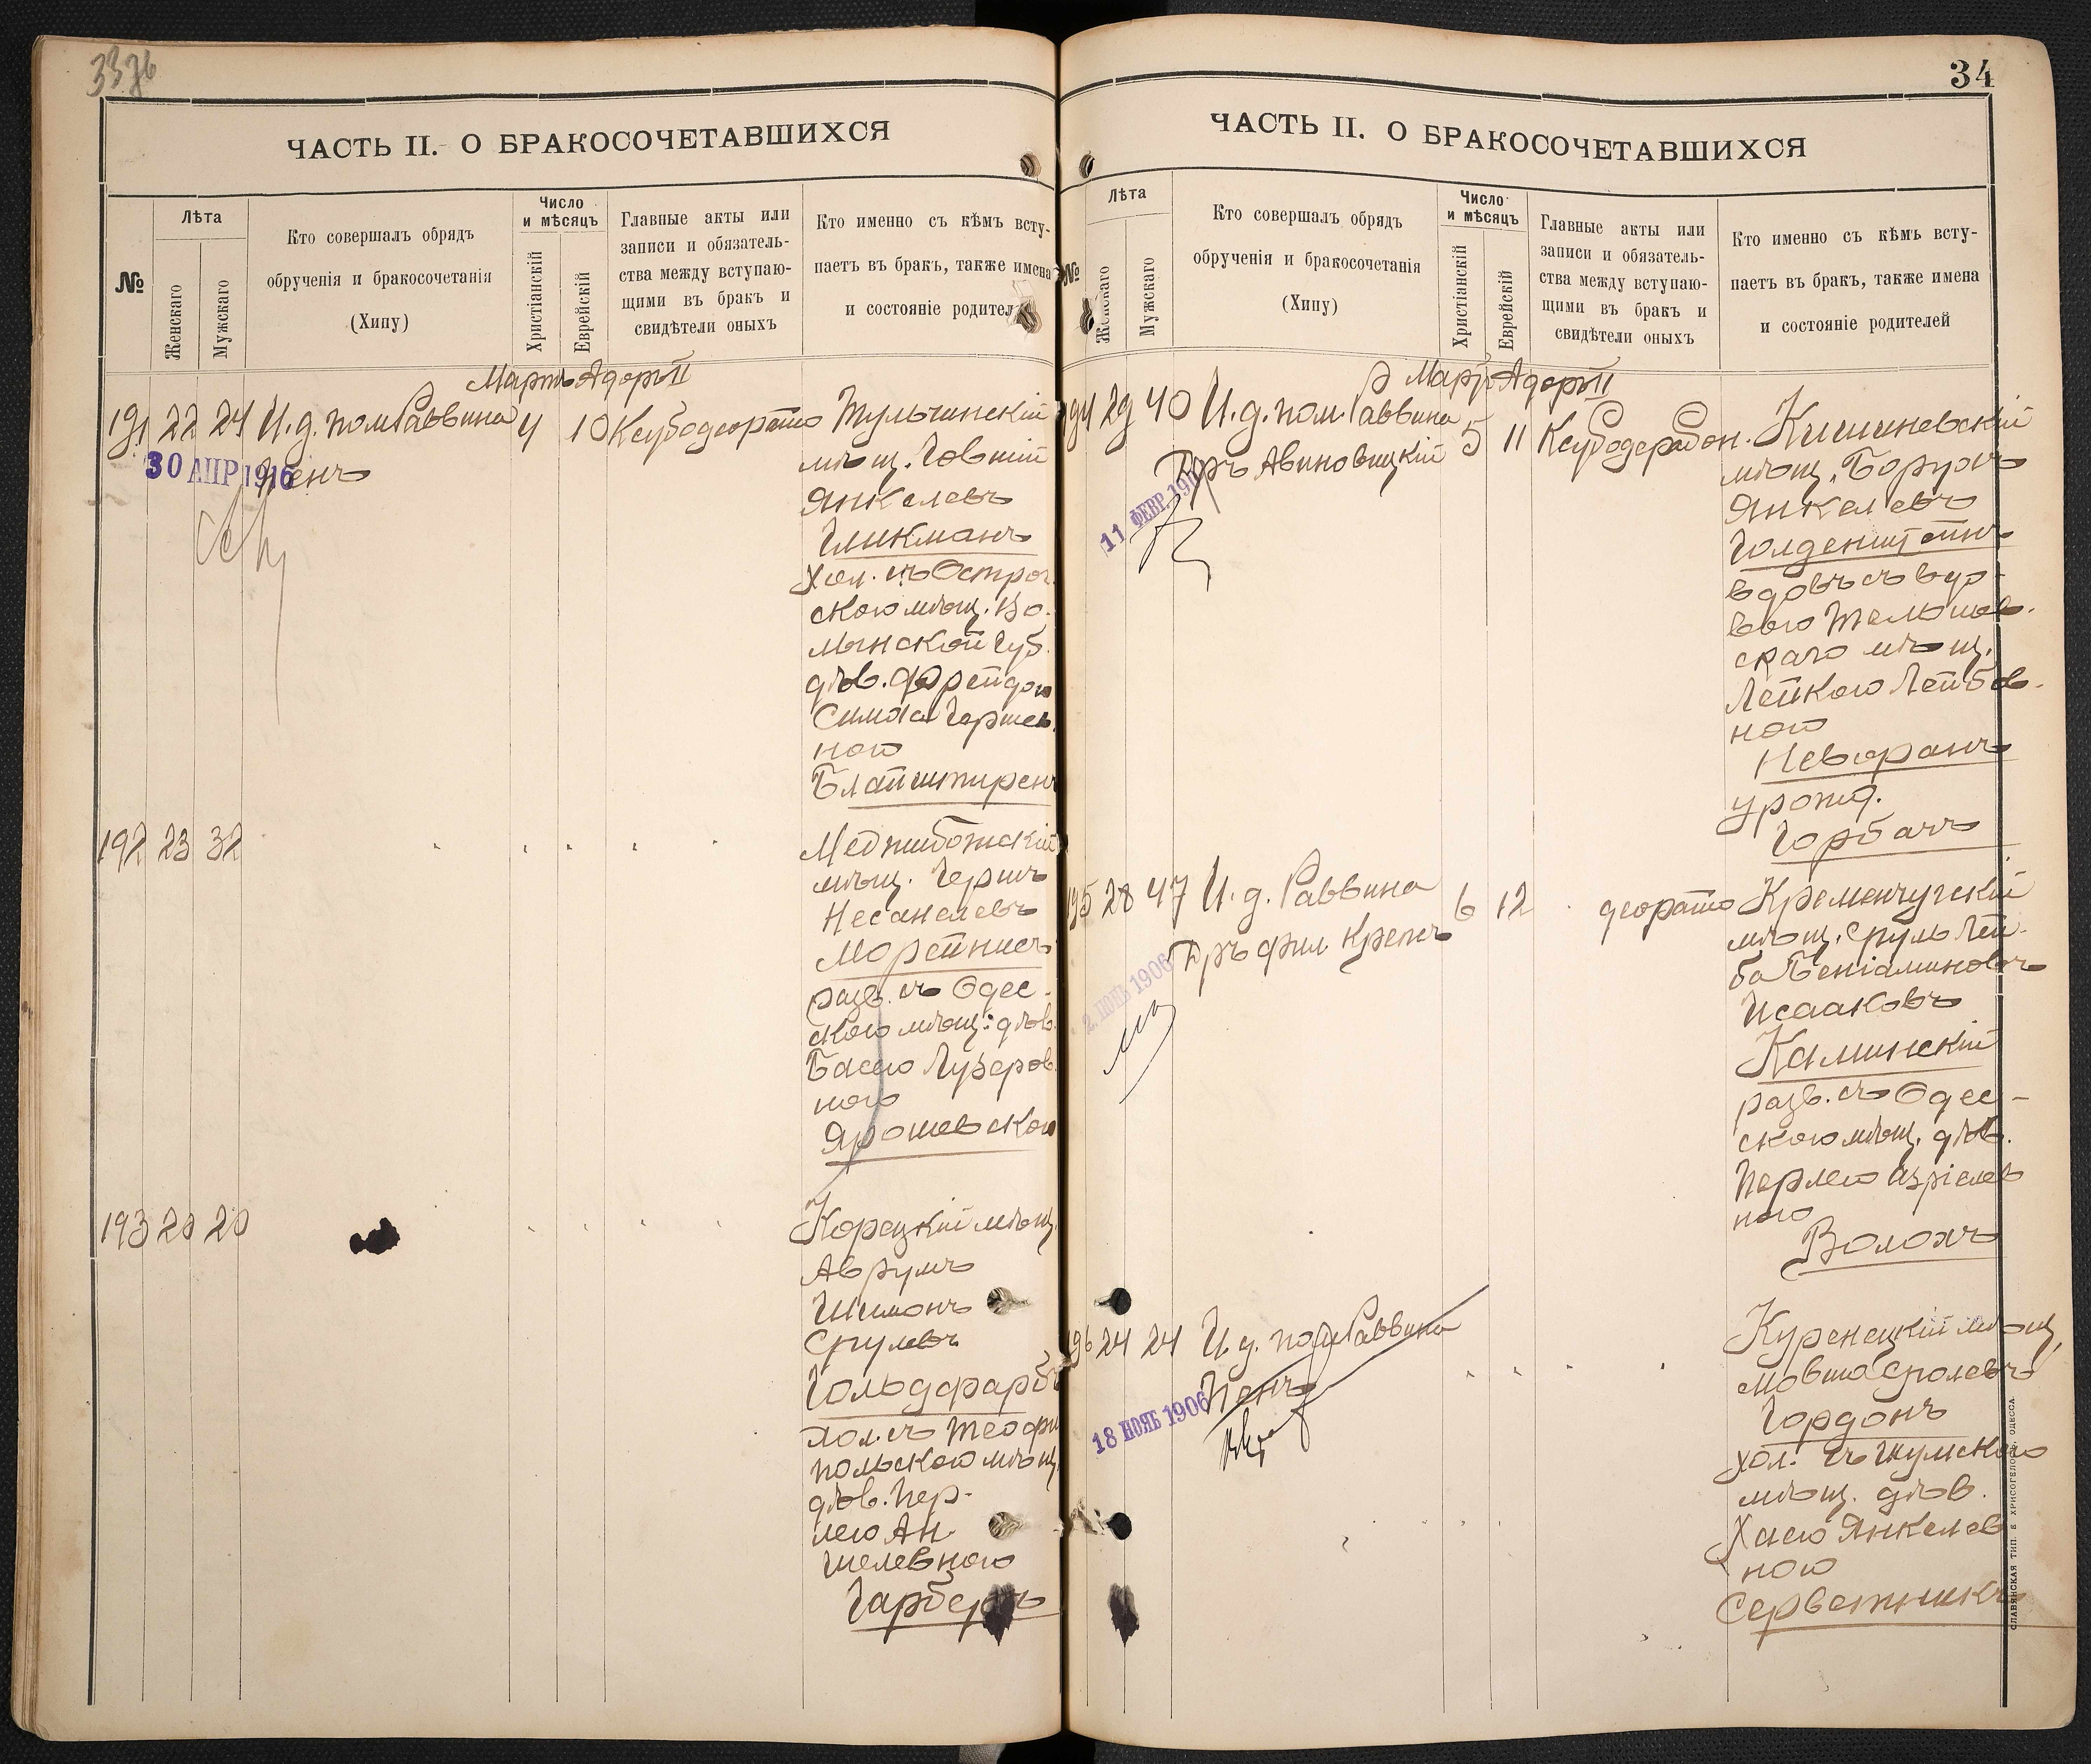 34
ЧАСТЬ II. О БРАКОСОЧЕТАВШИХСЯ
№
Лѣта
Женскаго
Мужскаго
Кто совершалъ обрядъ
обрученія и бракосочетанія
(Хипу)
Число
и мѣсяцъ
Христіанскій
Еврейскій
Главные акты или
записи и обязатель-
ства между вступаю-
щими въ бракъ и
свидѣтели оныхъ
Кто именно съ кѣмъ всту-
паетъ въ бракъ, также имена
и состояніе родител
Мартъ Адоръ II
191 22 24 И. д. пом Раввина 4 10
Пенъ
30 АПР 1916
Тульчинскій
мѣщ. Говшій
Янкелевъ
Гликманъ
хол. съ Острог.
скою мѣщ. Во-
лынской губ.
дѣв. Фрейдою
Симой Гершев.
ною
192 23 32
Меджибожскій
мѣщ. Гершъ
Несанелевъ
Морейнисъ
разв. съ Одес-
скою мѣщ. дѣв.
Басею Лузеров.
ною
Ярошевскою
193 20 20
Корецкій мѣщ.
Аврумъ
Шимонъ
Срулевъ
Гольдфарбъ
хол. съ Теофи
польскою мѣщ.
дѣв. Пер-
лею Ан-
шелевною
Гарберъ
ЧАСТЬ II. О БРАКОСОЧЕТАВШИХСЯ
№
Лѣта
Женскаго
Мужскаго
Кто совершалъ обрядъ
обрученія и бракосочетанія
(Хипу)
Число
и мѣсяцъ
Христіанскій
Еврейскій
Главные акты или
записи и обязатель-
ства между вступаю-
щими въ бракъ и
свидѣтели оныхъ
Кто именно съ кѣмъ всту-
паетъ въ бракъ, также имена
и состояніе родителей
Мартъ Адоръ II
194 29 40 И. д. пом. Раввина 5 11
Дръ Авиновицкій
11 ФЕВР. 19
Кишиневскій
мѣщ. Борухъ
Янкелевъ
Голденштейнъ
вдовъ съ вдо-
вою Тельшев-
скаго мѣщ.
Лейкою Лейбов-
ною
Неворанъ
урожд.
Горбачъ
195 28 47 И. д. Раввина 6 12
Дръ фил Крепсъ
1906
Кременчугскій
мѣщ. Сруль Лей-
ба Беніаминовъ
Исааковъ
Каминскій
разв. съ Одес-
скою мѣщ. дѣв.
Перлею Азріелев
ною
Волохъ
196 24 24 И. д. пом Раввина
Пенъ
18 НОЯБ 1906
Куренецкій мѣщ.
Мовша Сролевъ
Гордонъ
хол. съ Шумскою
мѣщ. дѣв.
Хаею Янкелев
ною
Серветникъ
СЛАВЯНСКАЯ ТИП. Е. ХРИСОГЕЛОСЪ, ОДЕССА